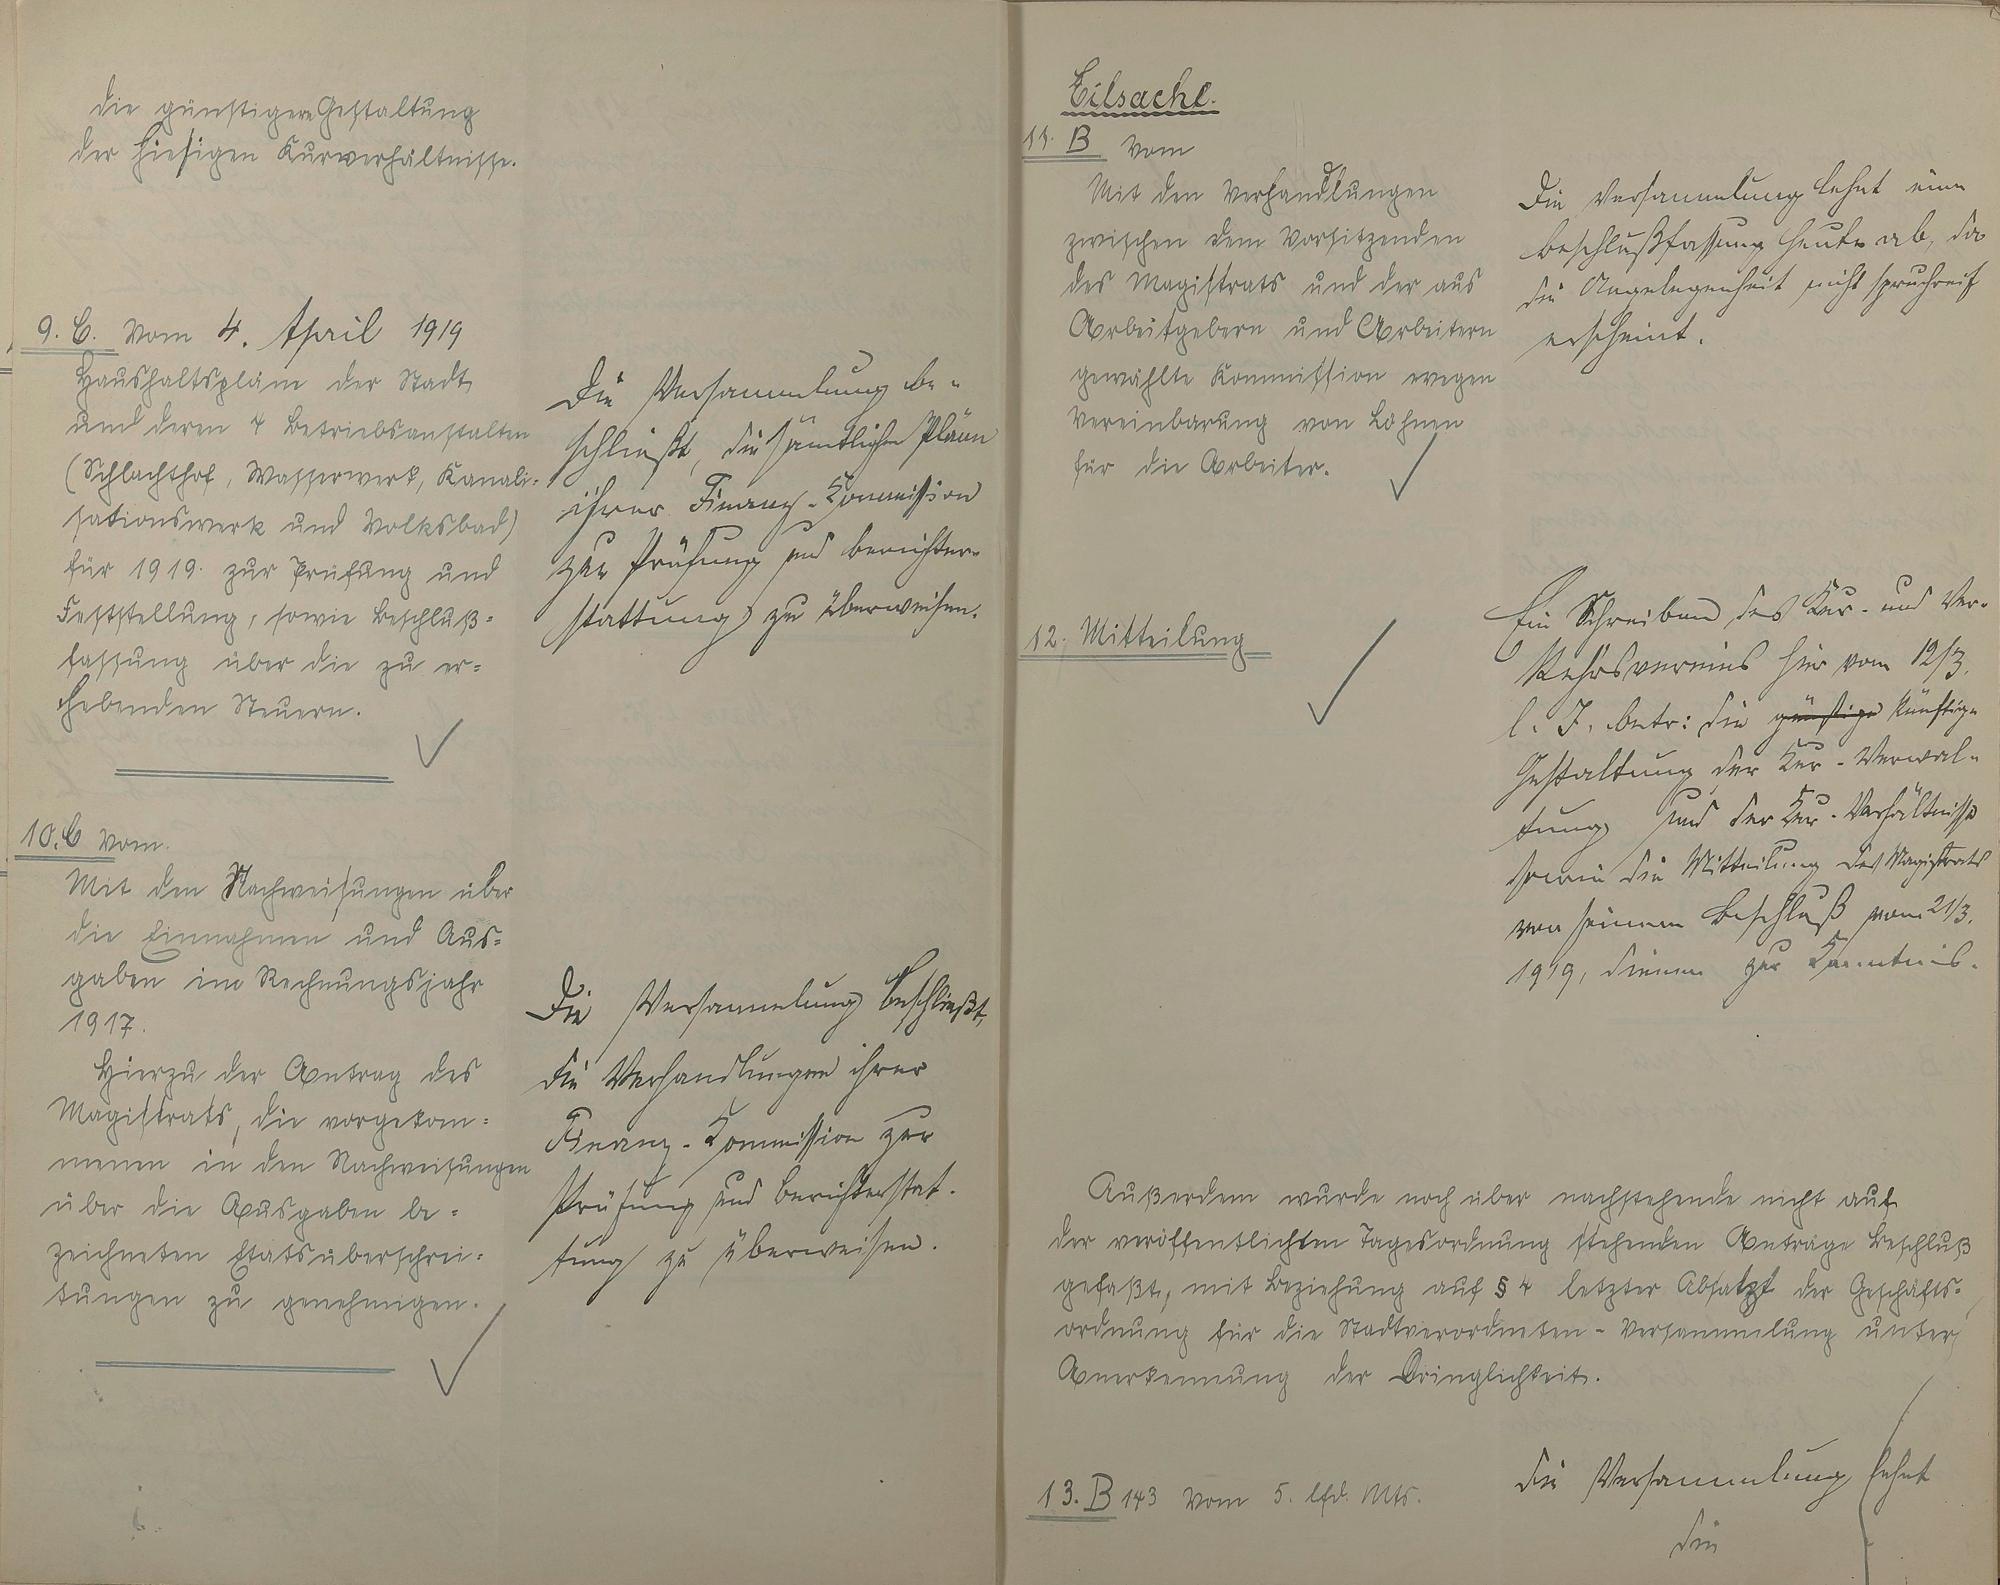 die günstigere Gestaltung
der hiesigen Kurverhältnisse.
9. C. Vom 4. April 1919
Haushaltspläne der Stadt
und deren 4 Betriebsanstalten
(Schlachthof, Wasserwerk, Kanali-
sationswerk und Volksbad)
für 1919. zur Prüfung und
Feststellung, sowie Beschluß-
fassung über die zu er-
hebenden Steuern.
Die Versammlung be-
schließt, die sämtlichen Pläne
ihrer Finanz-Kommission
zur Prüfung und Berichter-
stattung zu überweisen.
10. C vom.
Mit den Nachweisungen über
die Einnahmen und Aus-
gaben im Rechnungsjahr
1917.
Hierzu der Antrag des
Magistrats, die vorgekom-
menen in den Nachweisungen
über die Ausgaben be-
zeichneten Etatsüberschrei-
tungen zu genehmigen.
Die Versammlung beschließt,
die Verhandlungen ihrer
Finanz-Kommission zur
Prüfung und Berichterstat-
tung zu überweisen.
Eilsache.
11. B vom
Mit den Verhandlungen
zwischen dem Vorsitzenden
des Magistrats und der aus
Arbeitgebern und Arbeitern
gewählte Kommission wegen
Vereinbarung von Löhnen
für die Arbeiter.
Die Versammlung lehnt eine
Beschlußfassung heute ab, da
die Angelegenheit nicht spruchreif
erscheint.
12. Mitteilung
Ein Schreiben des Kur- und Ver-
kehrsvereins hier vom 12/3.
l. J. betr: die günstige künftige
Gestaltung der Kur-Verwal-
tung und der Kur-Verhältnisse
sowie die Mitteilung des Magistrats
von seinem Beschluß vom 21/3.
1919, dienen zur Kenntnis.
Außerdem wurde noch über nachstehende nicht auf
der veröffentlichten Tagesordnung stehenden Anträge Beschluß
gefaßt, mit Beziehung auf § 4 letzter Absatz der Geschäfts-
ordnung für die Stadtverordneten-Versammlung unter
Anerkennung der Dringlichkeit.
13. B 143 vom 5. lfd. Mts.
Die Versammlung lehnt
die